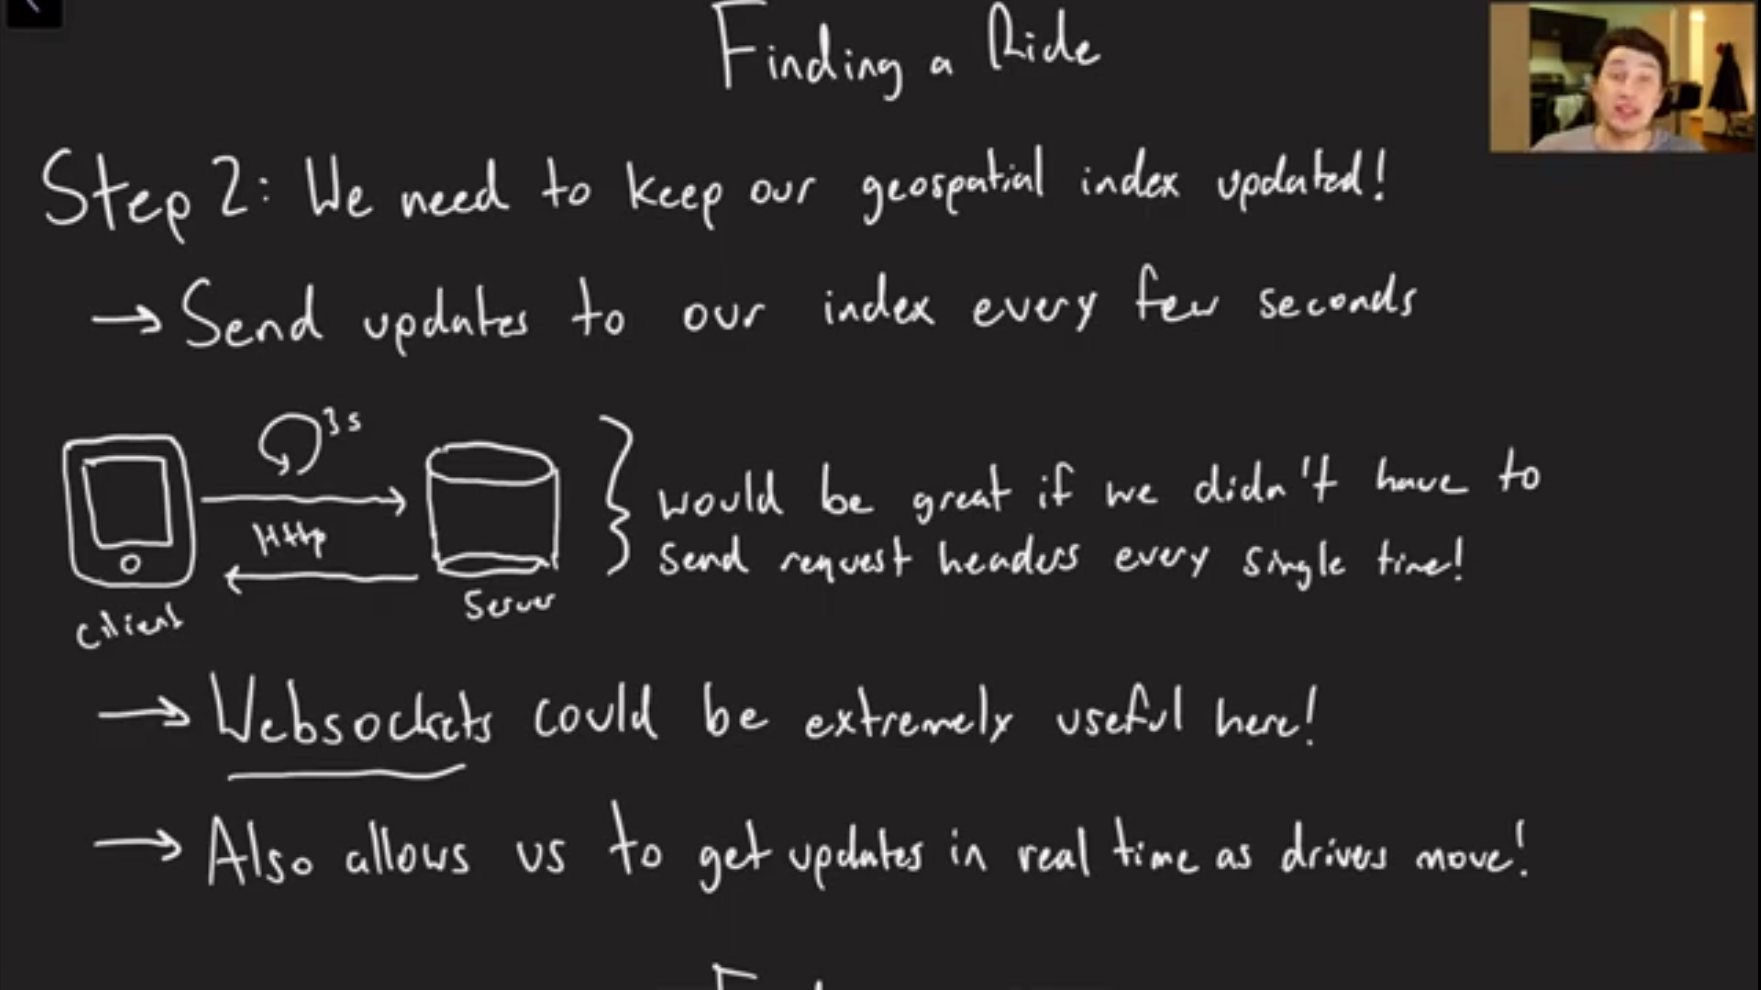 Finding a Ride
Step 2: We need to keep our geospatial index updated!
→ Send updates to our index every few seconds
3s
Http
Client
Server
would be great if we didn't have to
send request headers every single time!
→ Websockets could be extremely useful here!
→ Also allows us to get updates in real time as drivers move!